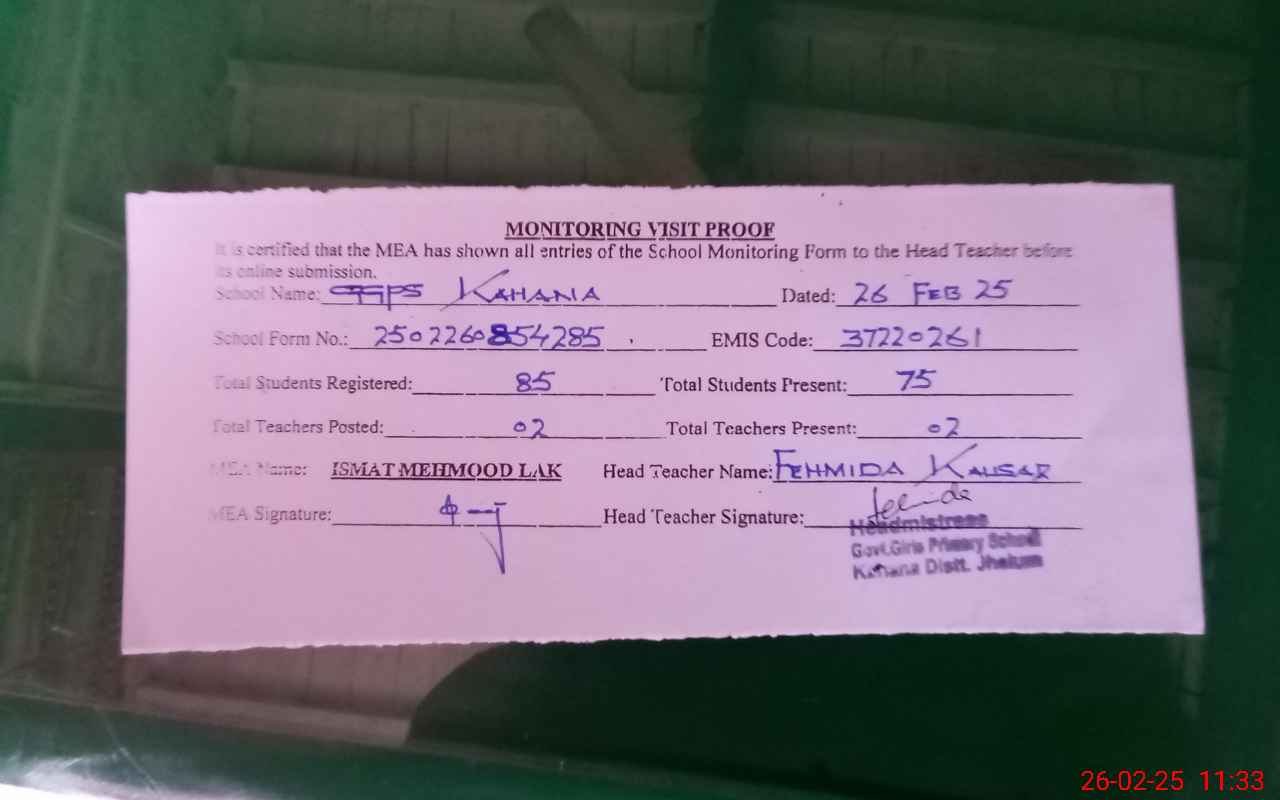 MONITORING VISIT PROOF
It is certified that the MEA has shown all entries of the School Monitoring Form to the Head Teacher before
its online submission.
School Name: GGPS KAHANA Dated: 26 FEB 25
School Form No.: 2502260854285 EMIS Code: 37220261
Total Students Registered: 85 Total Students Present: 75
Total Teachers Posted: 02 Total Teachers Present: 02
MEA Name: ISMAT MEHMOOD LAK Head Teacher Name: FEHMIDA KAUSAR
MEA Signature: Head Teacher Signature:
Headmistress
Govt.Girls Primary School
Kahana Distt. Jhelum
26-02-25 11:33